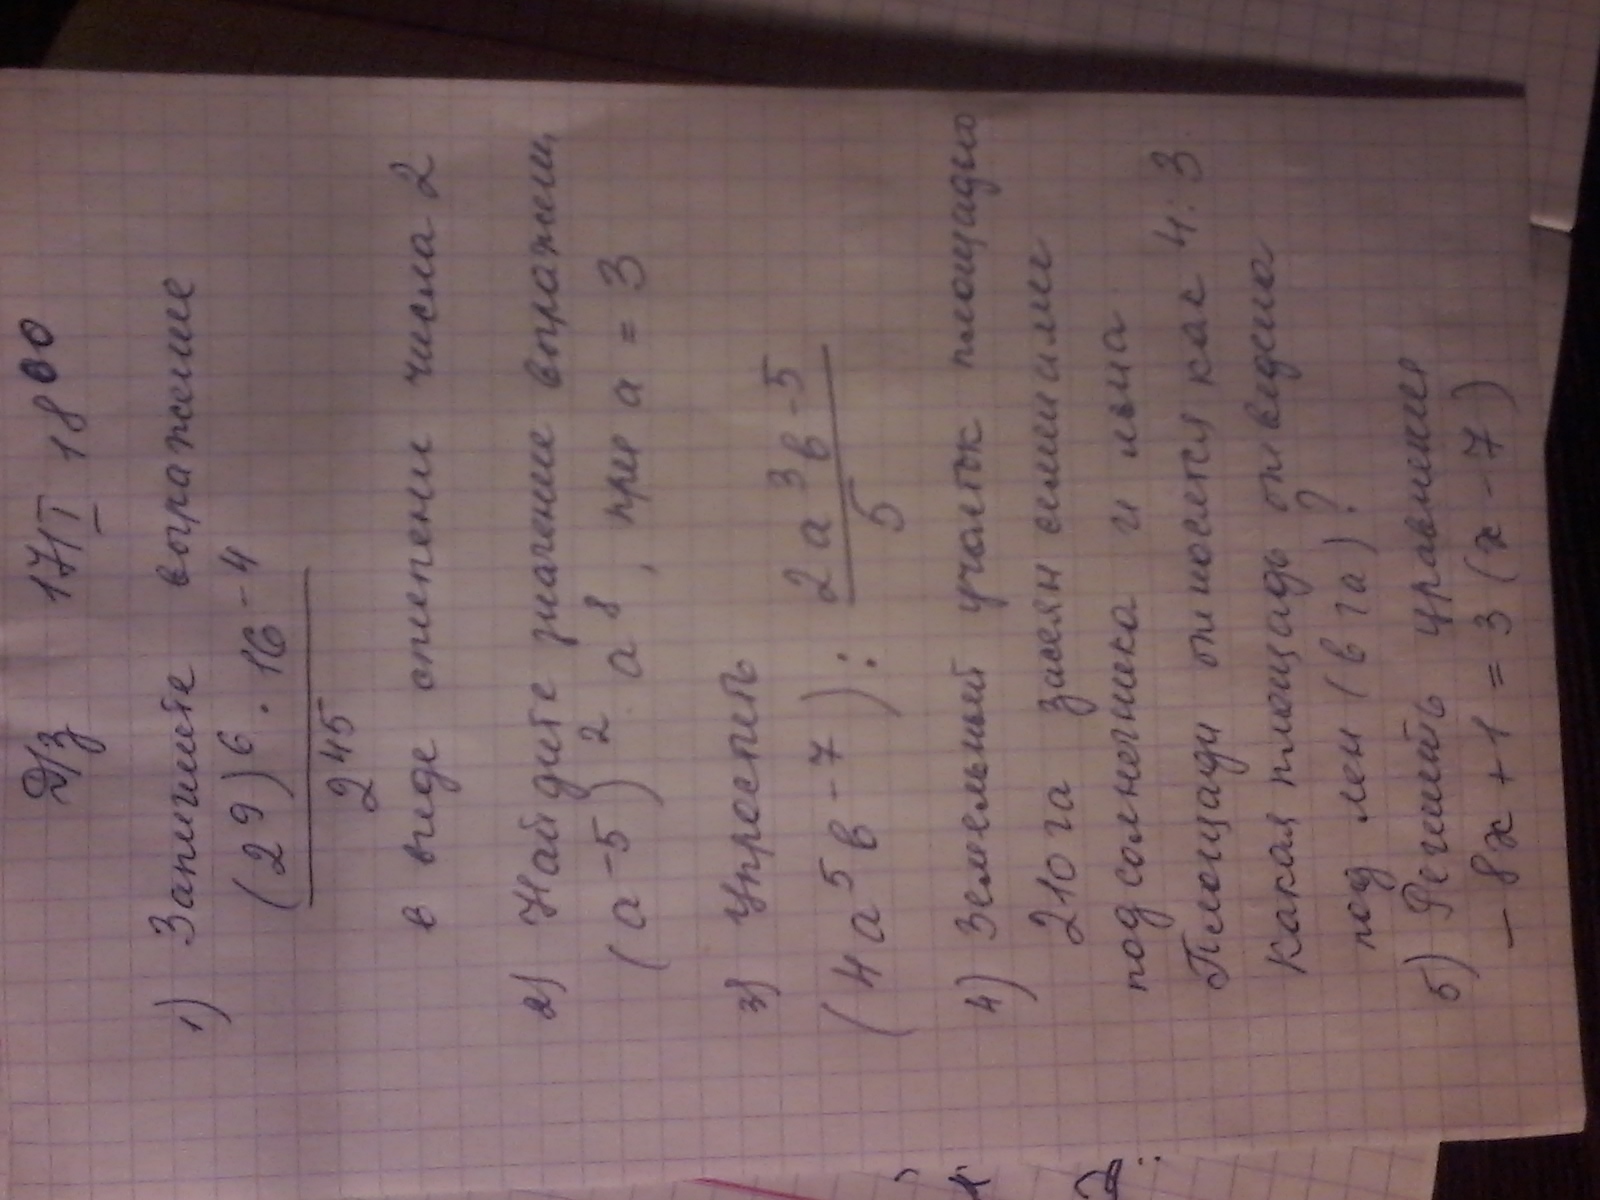 Д/з 17/II 18 00
1) Запишите выражение
(2 9) 6 · 16 -4
2 45
в виде степени числа 2
2) Найдите значение выражени
(a -5) 2 · a 8, при a = 3
3) Упростить
(4 a 5 в -7) : 2 a 3 в -5
5
4) Земельный участок площадью
210 га засеян семенами
подсолнечника и льна.
Площади относятся как 4:3.
Какая площадь отведена
под лен (в га)?
5) Решить уравнение
- 8x + 1 = 3 (x - 7)